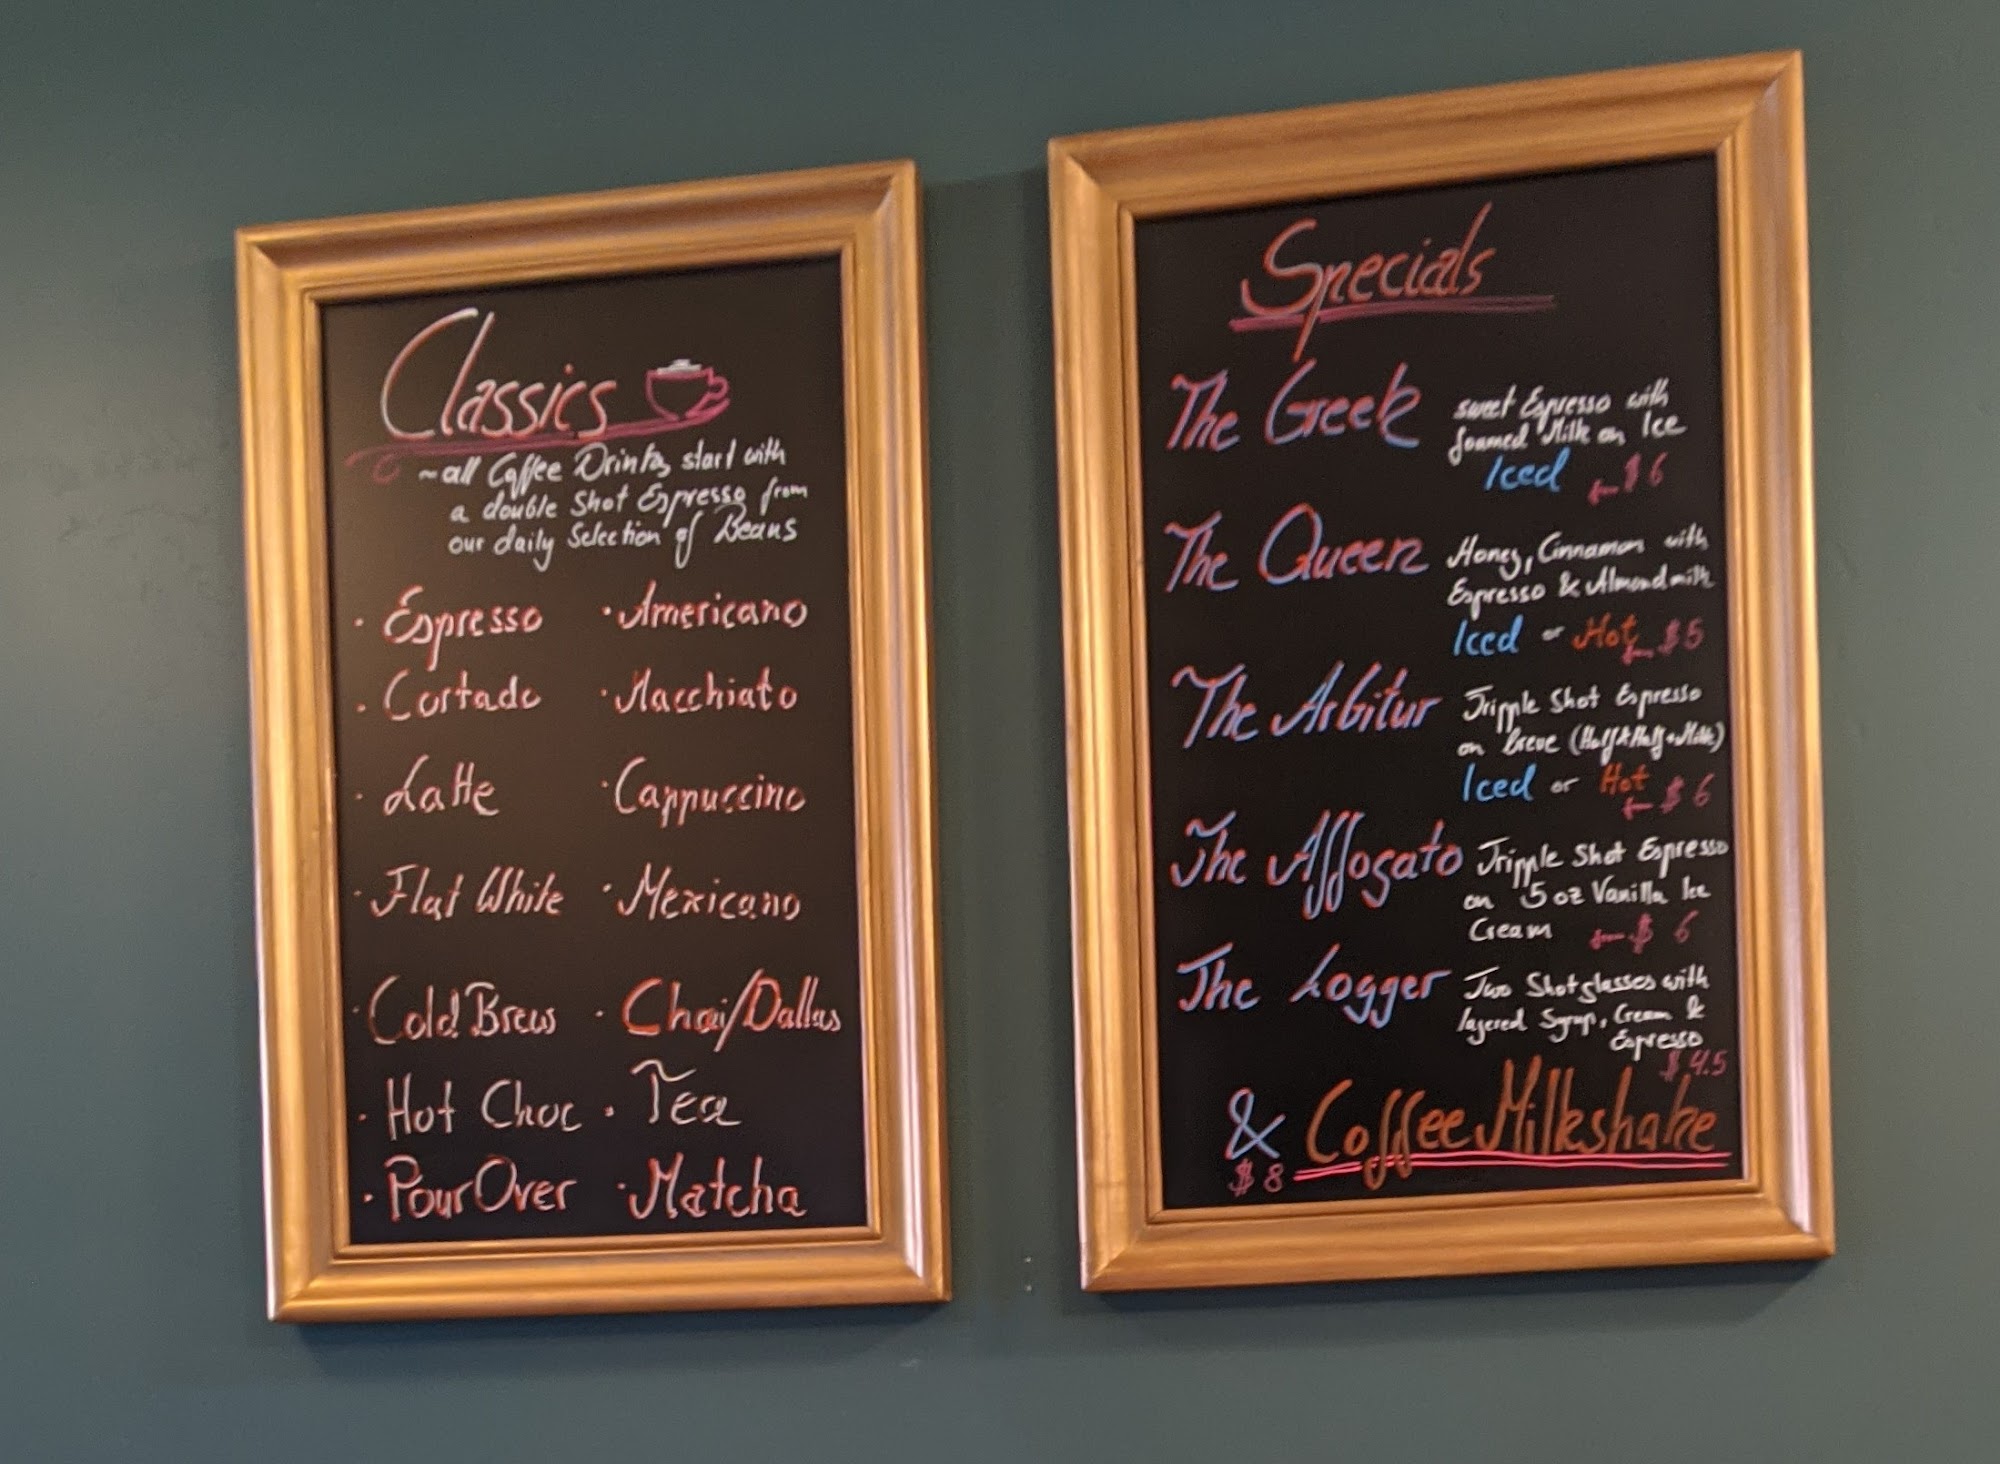 Classics
~all Coffee Drinks start with
a double Shot Espresso from
our daily Selection of Beans
· Espresso · Americano
· Cortado · Macchiato
· Latte · Cappuccino
· Flat White · Mexicano
· Cold Brew · Chai/Dallas
· Hot Choc · Tea
· Pour Over · Matcha
Specials
The Greek
sweet Espresso with
foamed Milk on Ice
Iced ← $6
The Queen
Honey, Cinnamon with
Espresso & Almondmilk
Iced or Hot ← $5
The Arbitur
Tripple Shot Espresso
on breve (Half&Half+Milk)
Iced or Hot
← $6
The Affogato
Tripple Shot Espresso
on 5 oz Vanilla Ice
Cream ← $6
The Logger
Two Shotglasses with
layered Syrup, Cream &
Espresso
$4.5
& Coffee Milkshake
$8